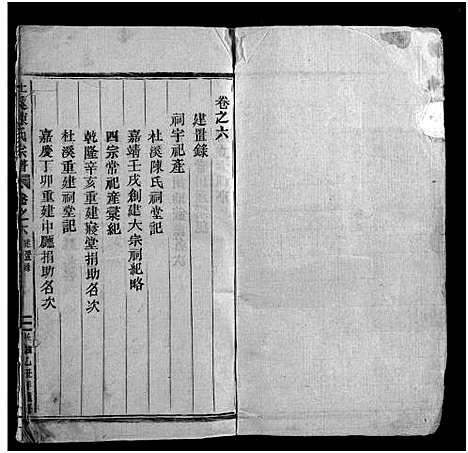 卷之六
建置錄
祠宇祀產
杜溪陳氏祠堂記
嘉靖壬戌創建大宗祠紀略
四宗常祀產彙紀
乾隆辛亥重建寢堂捐助名次
杜溪重建祠堂記
嘉慶丁卯重建中廳捐助名次
杜溪陳氏宗譜 卷之六 建置錄